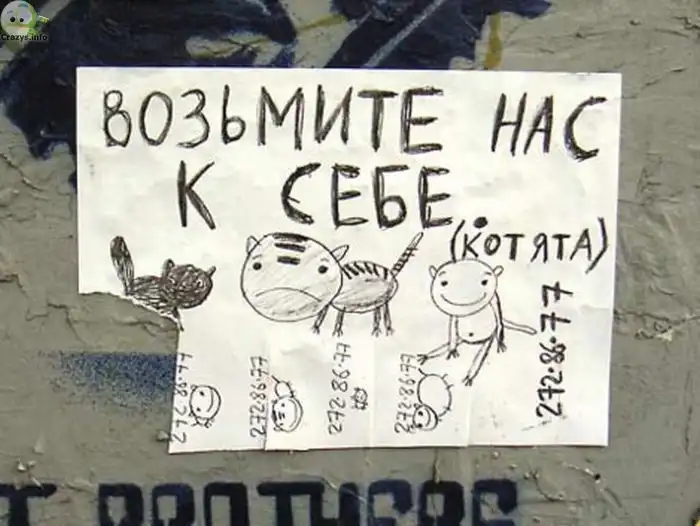 Crazys.info
ВОЗЬМИТЕ НАС
К СЕБЕ.
(КОТЯТА)
272·86·77
272·86·77
272·86·77
272·86·77
272·86·77
T BROTHERS